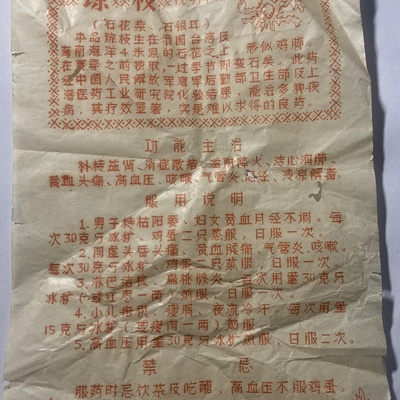 琼枝
(石花菜、石银耳)
本品琼枝生在我国台湾及
海南岛海洋4米深的石花之上，形似鸡脚，
在夏季之前梗取，过季节即变石矣。此药
经中国人民解放军海军后勤部卫生部及上
海医药工业研究院化验结果，能治多种疾
病，其疗效显著，实是难以求得的良药。
功能主治
补精益肾、消症散结、滋阴降火、清心润肺、
贫血头痛、高血压、咳嗽、气管炎、
服用说明
1.男子精枯阳萎、妇女贫血月经不调。每
次30克冰粆、鸡蛋二只蒸服，日服一次。
2.两虚头昏头痛、贫血腰痛，气管炎、咳嗽。
每次用30克冰粆、鸡蛋二只蒸服，日服一次。
3.淋巴结核、扁桃腺炎。每次用量30克牙
冰粆(或红枣一两)煎服，日服一次。
4.小儿疳积、便服、夜流冷汗。每次用量
15克牙冰粆(或瘦肉一两)炖服
5.高血压用量30克冰粆煎服，日服二次。
禁忌
服药时忌饮茶及吃醋，高血压不服鸡蛋。